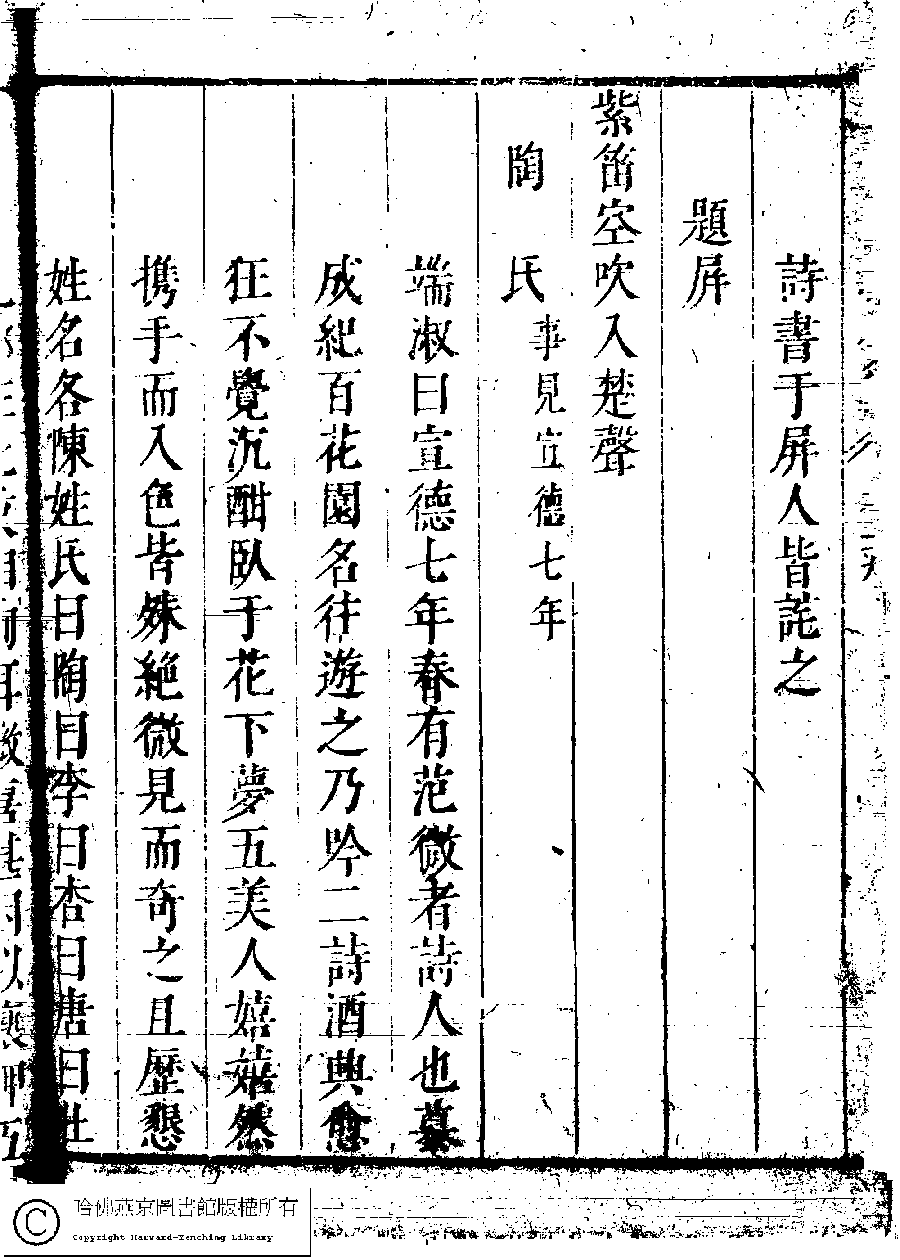 詩書于屏人皆詫之
題屏
紫笛空吹入楚聲
陶氏事見宣德七年
端淑曰宣德七年春有范微者詩人也慕
成紀百花園名往遊之乃吟二詩酒興愈
狂不覺沉酣臥于花下夢五美人嬉嬉然
携手而入色皆殊絕微見而奇之且歷懇
姓名各陳姓氏曰陶曰李曰杏曰唐曰杜
哈佛燕京圖書館版權所有
Copyright Harvard-Yenching Library